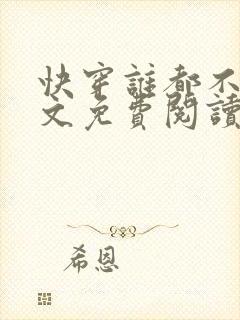 快穿誰都不
文免費閱讀
希恩